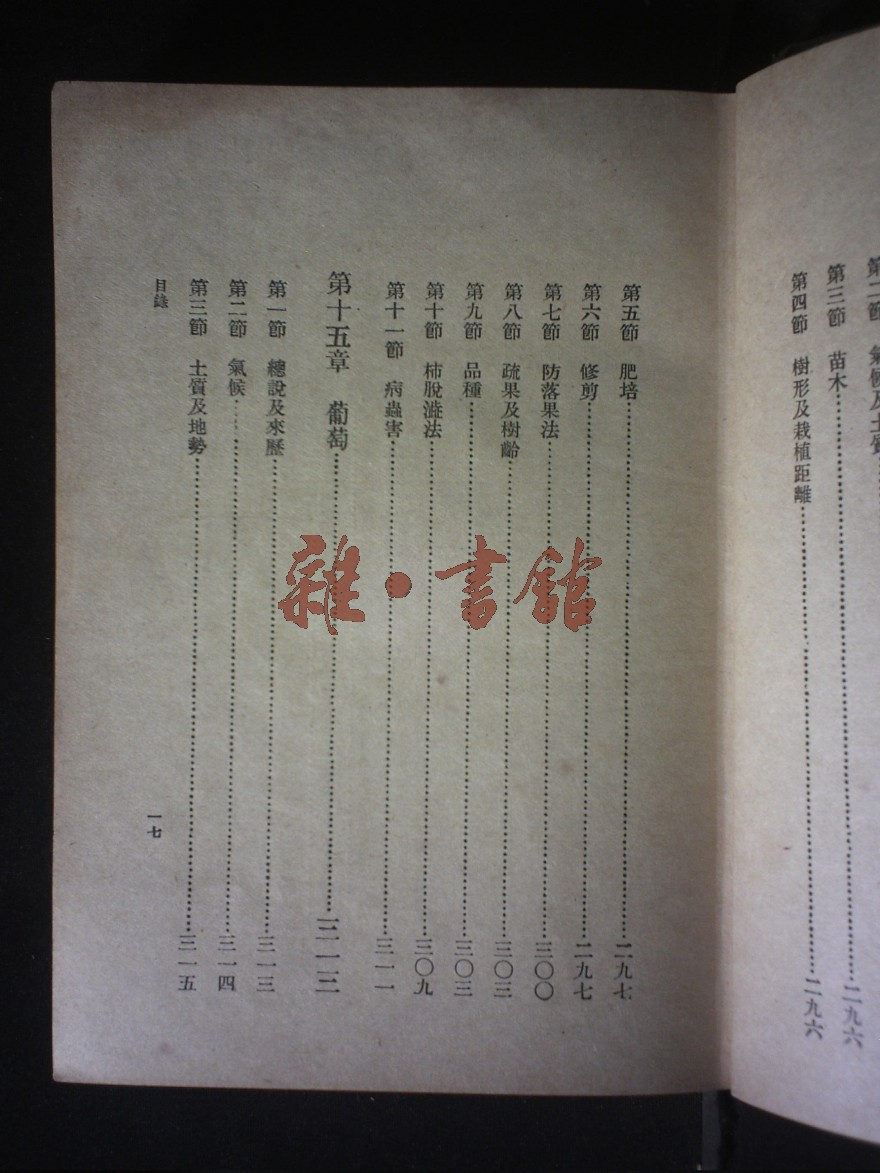 第二節　氣候及土質
第三節　苗木……二九六
第四節　樹形及栽植距離……二九六
第五節　肥培……二九七
第六節　修剪……二九七
第七節　防落果法……三〇〇
第八節　疏果及樹齡……三〇三
第九節　品種……三〇三
第十節　柿脫澁法……三〇九
第十一節　病蟲害……三一一
第十五章　葡萄……三一三
第一節　總說及來歷……三一三
第二節　氣候……三一四
第三節　土質及地勢……三一五
目錄
一七
雜·書館